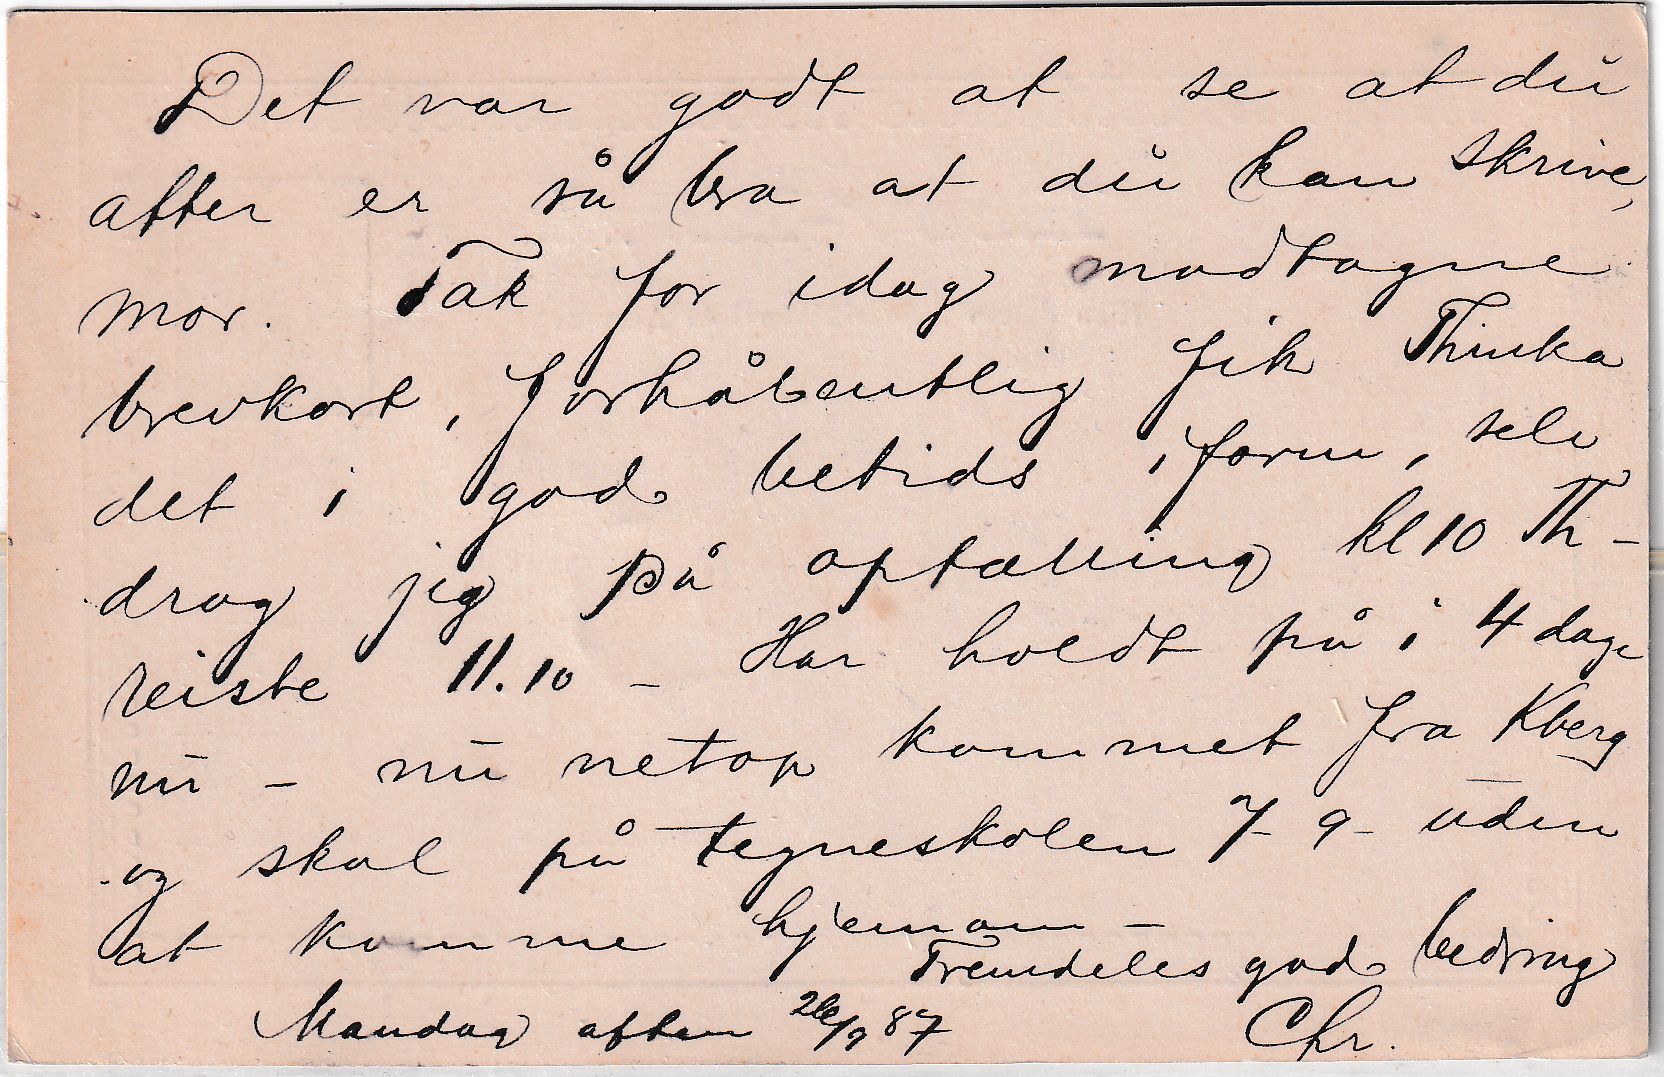 Det var godt at se at du
atter er så bra at du kan skrive,
mor. Tak for idag modtagne
brevkort, forhåbentlig fik Thinka
det i god betids form, selv
drog jeg på optælling kl 10 Th-
reiste 11.10 - Har holdt på i 4 dage
nu - nu netop kommet fra Kberg
og skal på tegneskolen 7-9 uden
at komme hjemom -
Fremdeles god bedring
Mandag aften 26/9 87 Chr.